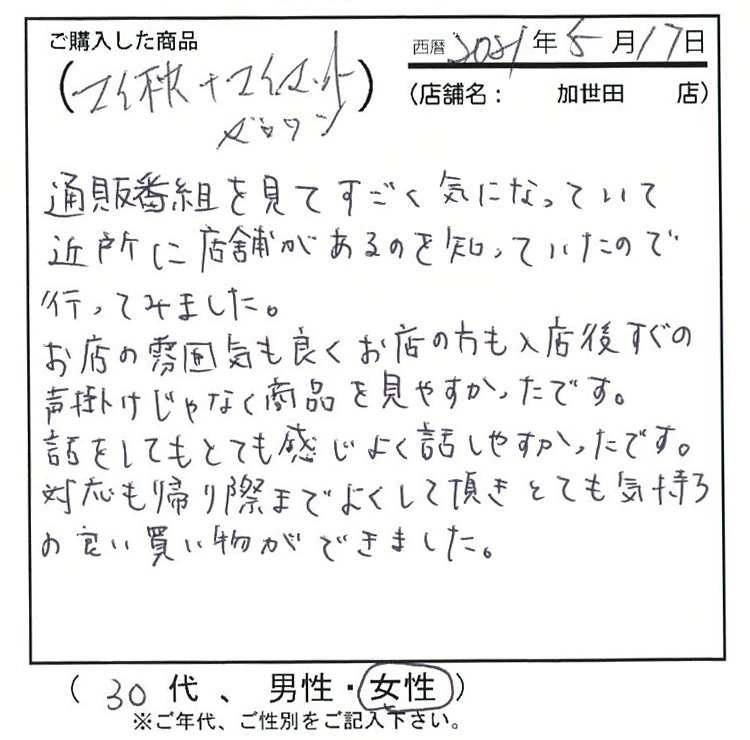 ご購入した商品
西暦 2021年 5月17日
(マイ枕+マイマット)
(店舗名： 加世田 店)
通販番組を見てすごく気になっていて
近所に店舗があるのを知っていたので
行ってみました。
お店の雰囲気も良くお店の方も入店後すぐの
声掛けじゃなく商品を見やすかったです。
話をしてもとても感じよく話しやすかったです。
対応も帰り際までよくして頂きとても気持ち
の良い買い物ができました。
(30代、男性・女性)
※ご年代、ご性別をご記入下さい。